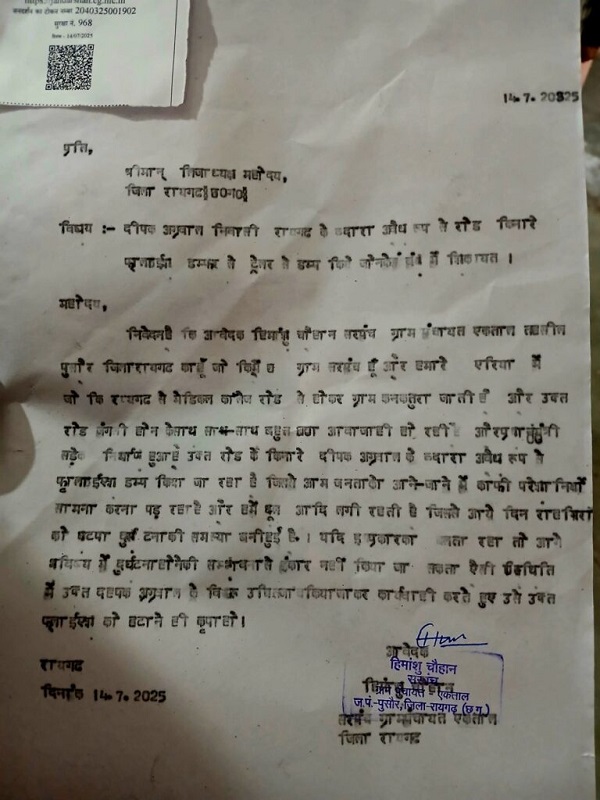 https://jandarshan.cg.nic.in
जनदर्शन का टोकन नम्बर 2040325001902
सुरक्षा नं. 968
Date : 14/07/2025
14. 7. 2025
प्रति,
श्रीमान् जिलाध्यक्ष महोदय,
जिला रायगढ़ छ0ग0
विषय :- दीपक अग्रवाल निवासी रायगढ के व्दारा अवैध रूप से रोड किनारे
फ्लाईएश डम्फर से ट्रेलर से डम्प किये जाने में शिकायत ।
महोदय,
निवेदन है कि आवेदक हिमांशु चौहान सरपंच ग्राम पंचायत एकताल तहसील
पुसौर जिला रायगढ का हूँ जो कि ग्राम सरपंच हूँ और हमारे एरिया में
जो कि रायगढ से मेडिकल कालेज रोड से होकर ग्राम कनकतुरा जाती है और उक्त
रोड होने के साथ साथ-साथ बहुत आवाजाही हो रही है और
सड़क निर्माण हुआ है उक्त रोड के किनारे दीपक अग्रवाल के व्दारा अवैध रूप से
फ्लाईएश डम्प किया जा रहा है जिससे आम जनता को आने-जाने में काफी परेशानियों
सामना करना पड़ रहा है और हमें धूल आदि लगी रहती है जिससे आये दिन राहगिरों
को घटना की समस्या बनी हुई है. । यदि इस प्रकार का चलता रहा तो आगे
भविष्य में दुर्घटना होने की सम्भावना से इंकार नहीं किया जा सकता ऐसी स्थिति
में उक्त दीपक अग्रवाल के विरूध उचित कार्यवाही करते हुए उसे उक्त
फ्लाईएश को हटाने की कृपा हो।
आवेदक
रायगढ
दिनांक 14. 7. 2025
हिमांशु चौहान
सरपंच
ग्राम पंचायत - एकताल
ज.पं.-पुसौर, जिला-रायगढ़ (छ.ग.)
हिमांशु चौहान
सरपंच ग्राम पंचायत एकताल
जिला रायगढ